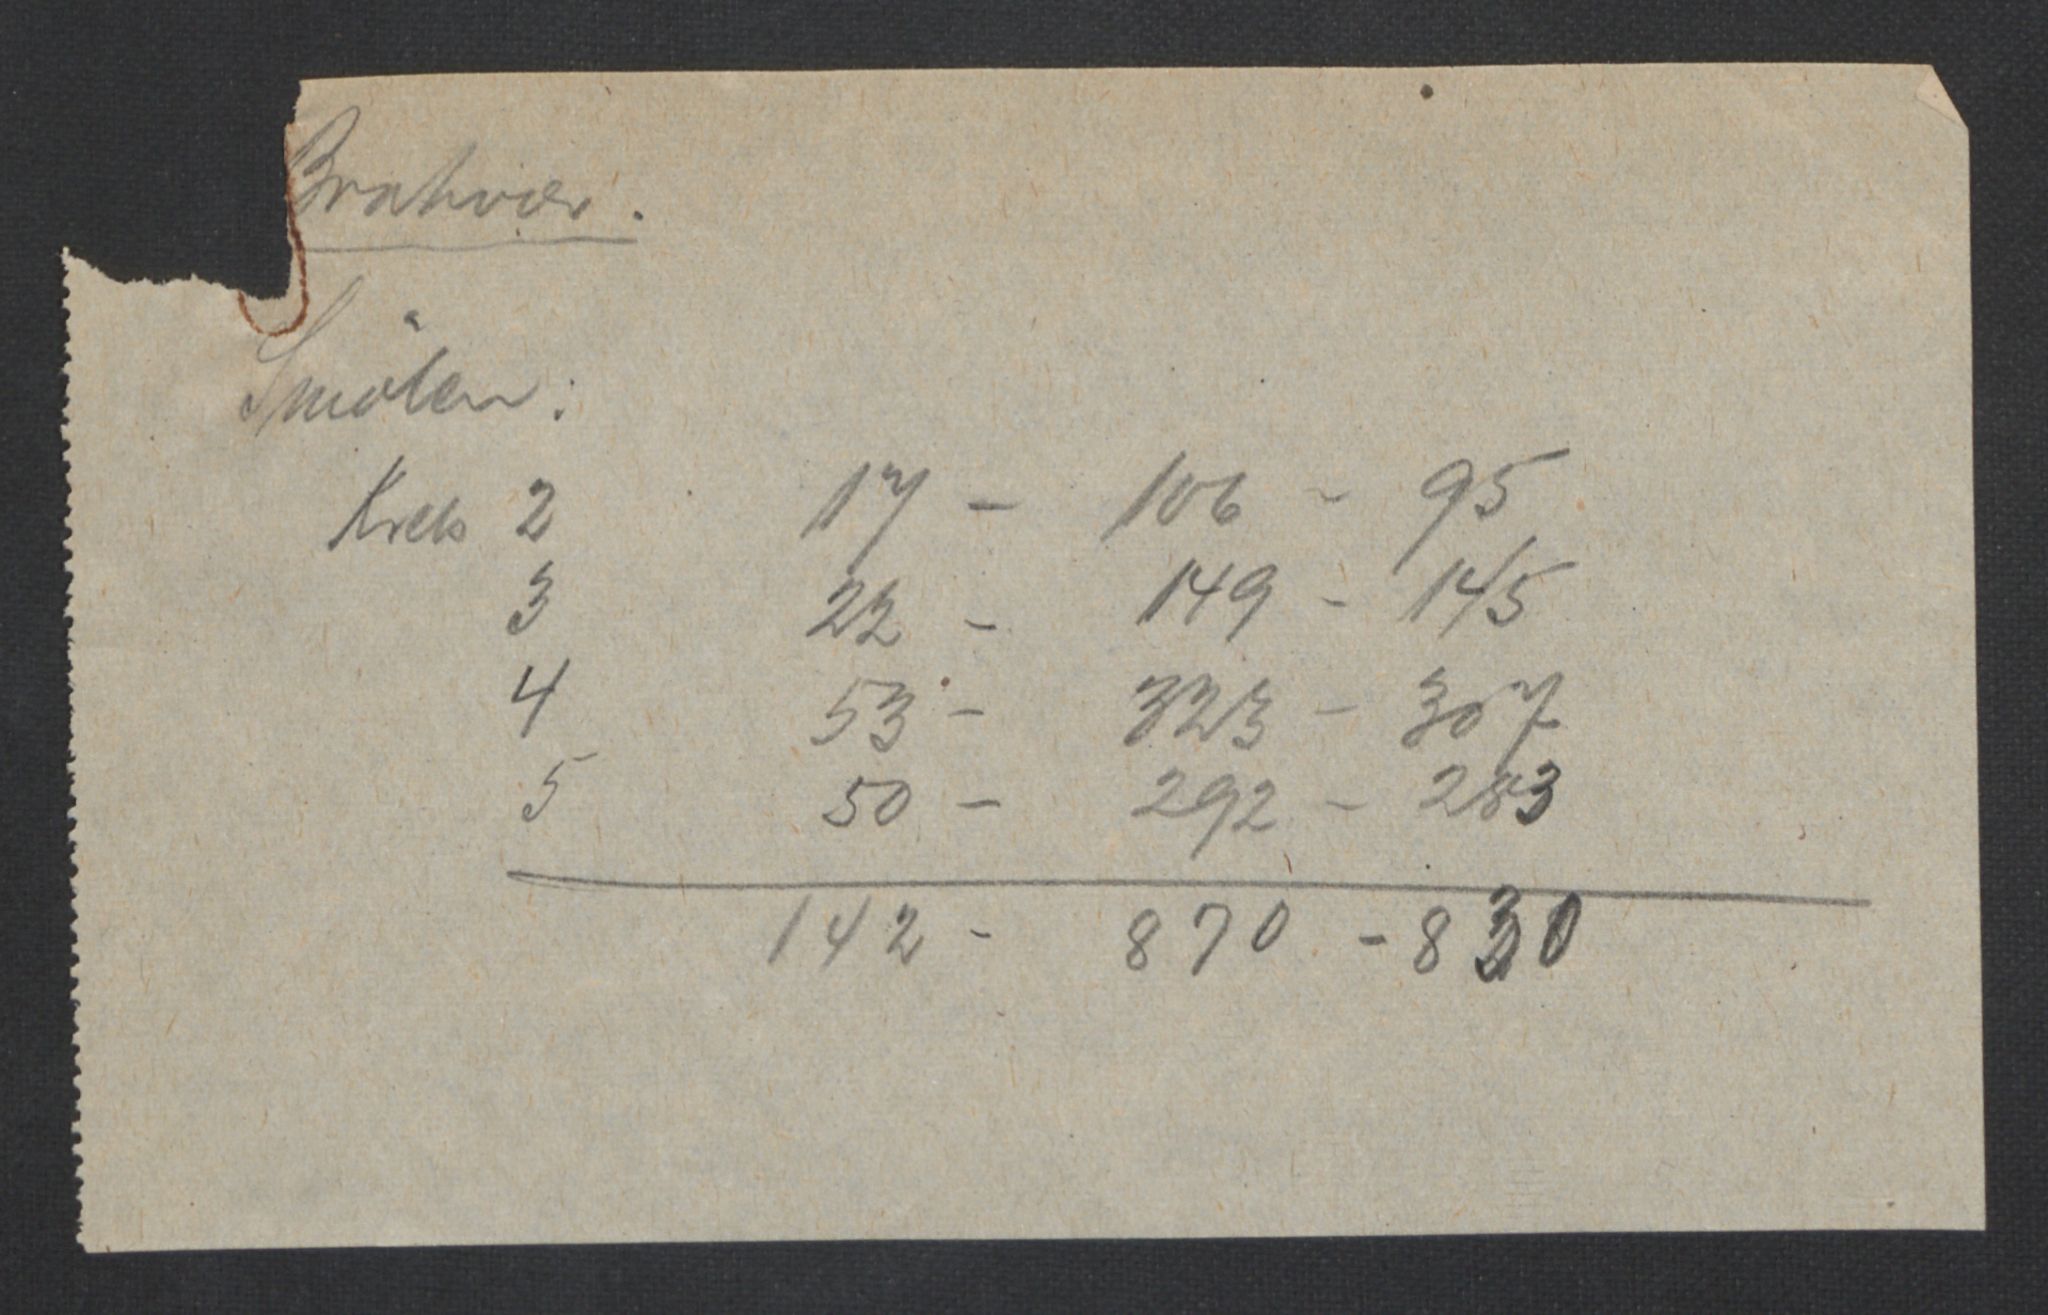 Bratvær.
Smölen:
Kreds 2 17 - 106 - 95
3 22 - 149 - 145
4 53 - 323 - 307
5 50 - 292 - 283
142 - 870 - 830